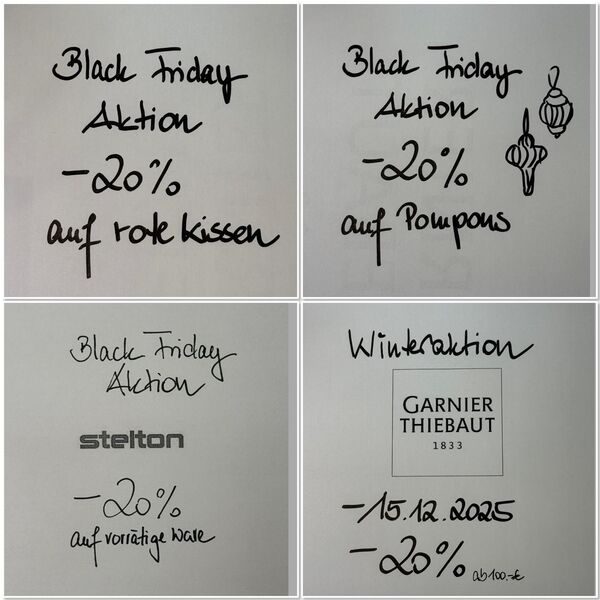 Black Friday
Aktion
-20%
auf rote Kissen
Black Friday
Aktion
-20%
auf Pompons
Black Friday
Aktion
stelton
-20%
auf vorrätige Ware
Winteraktion
GARNIER
THIEBAUT
1833
-15.12.2025
-20% ab 100.-€